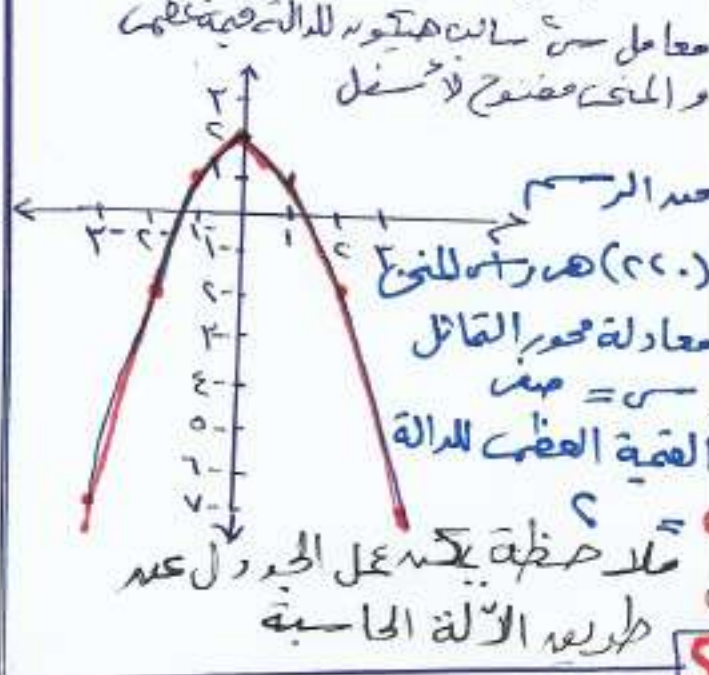 معامل س٢ سالب هتكون للدالة قيمة عظمى
و المنحنى مفتوح لأسفل
٣
٢
١
٣- ٢- ١-
١ ٢ ٣
١-
٢-
٣-
٤-
٥-
٦-
٧-
من الرسم
(٢،٠) هى رأس المنحنى
معادلة محور التماثل
س = صفر
القيمة العظمى للدالة
= ٢
ملاحظة يمكن عمل الجدول عن
طريق الآلة الحاسبة